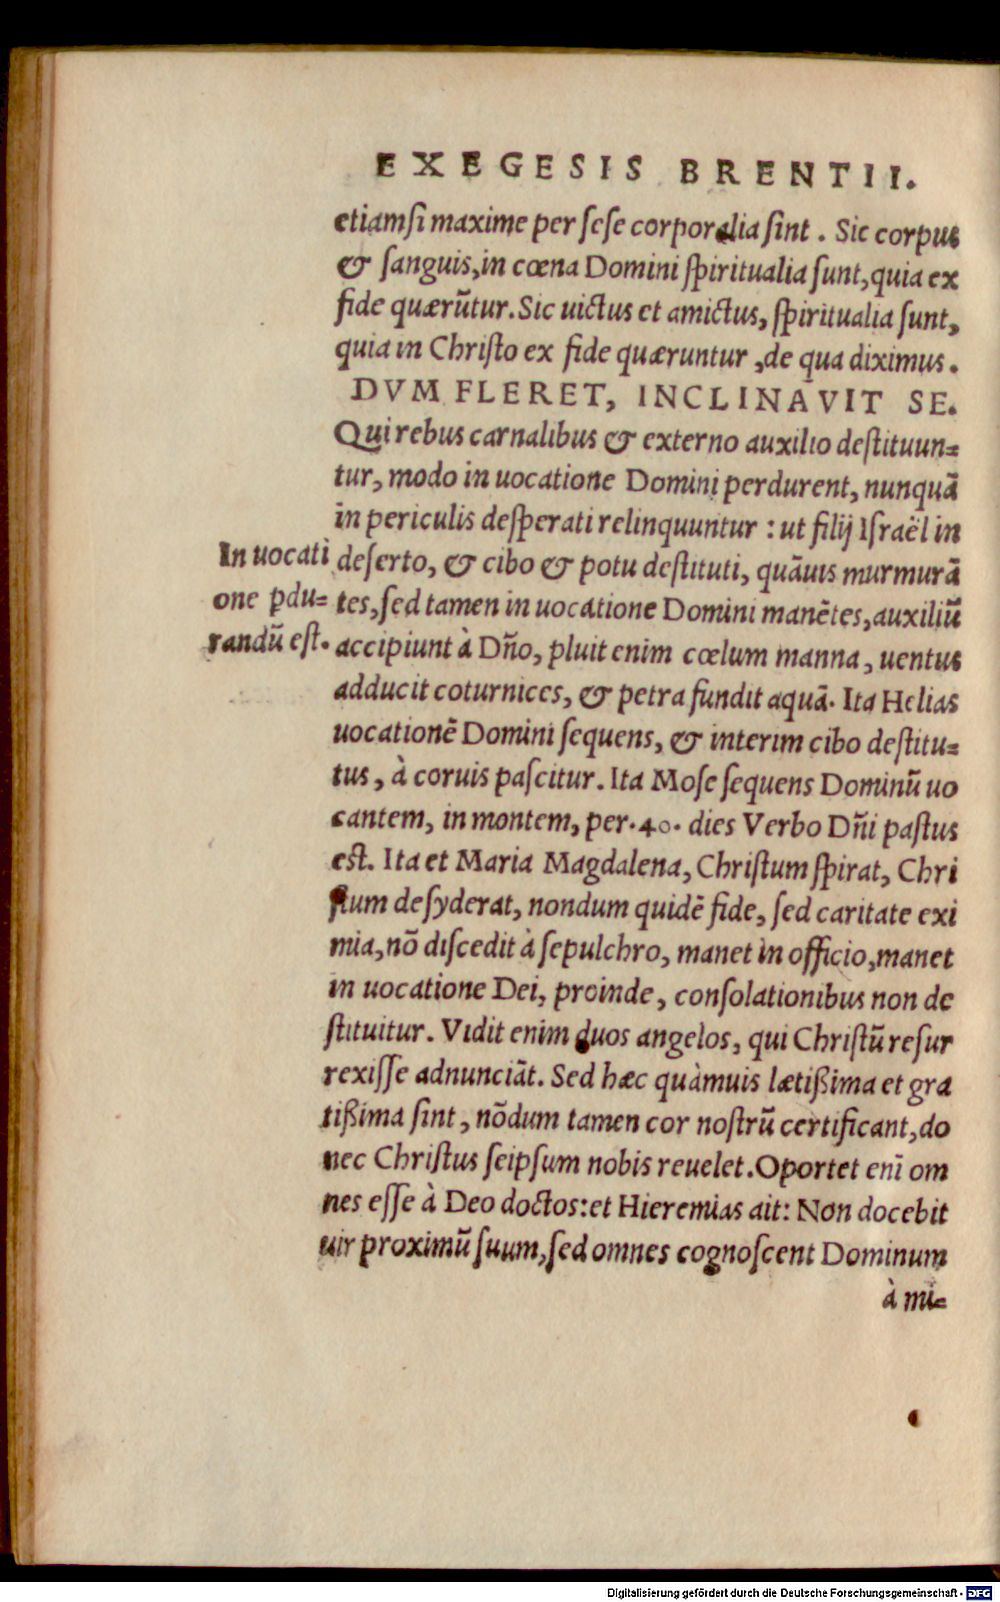 EXEGESIS BRENTII.
etiamsi maxime per sese corporalia sint. Sic corpus
& sanguis, in cœna Domini spiritualia sunt, quia ex
fide quærũtur. Sic uictus et amictus, spiritualia sunt,
quia in Christo ex fide quæruntur, de qua diximus.
DVM FLERET, INCLINAVIT SE.
Qui rebus carnalibus & externo auxilio destituun=
tur, modo in uocatione Domini perdurent, nunquã
in periculis desperati relinquuntur: ut filij Israël in
deserto, & cibo & potu destituti, quãuis murmurã
tes, sed tamen in uocatione Domini manẽtes, auxiliũ
accipiunt à Dño, pluit enim cœlum manna, uentus
adducit coturnices, & petra fundit aquã. Ita Helias
uocationẽ Domini sequens, & interim cibo destitu=
tus, à coruis pascitur. Ita Mose sequens Dominũ uo
cantem, in montem, per .40. dies Verbo Dñi pastus
est. Ita et Maria Magdalena, Christum spirat, Chri
stum desyderat, nondum quidẽ fide, sed caritate exi
mia, nõ discedit à sepulchro, manet in officio, manet
in uocatione Dei, proinde, consolationibus non de
stituitur. Vidit enim duos angelos, qui Christũ resur
rexisse adnunciãt. Sed hæc quàmuis lætißima et gra
tißima sint, nõdum tamen cor nostrũ certificant, do
nec Christus seipsum nobis reuelet. Oportet enĩ om
nes esse à Deo doctos: et Hieremias ait: Non docebit
uir proximũ suum, sed omnes cognoscent Dominum
à mi=
In uocati
one pdu=
randũ est.
Digitalisierung gefördert durch die Deutsche Forschungsgemeinschaft - DFG